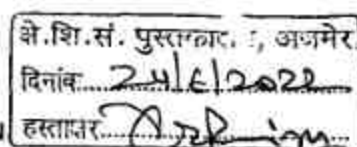 क्षे.शि.सं. पुस्तकालय, अजमेर
दिनांक 24/6/2022
हस्ताक्षर